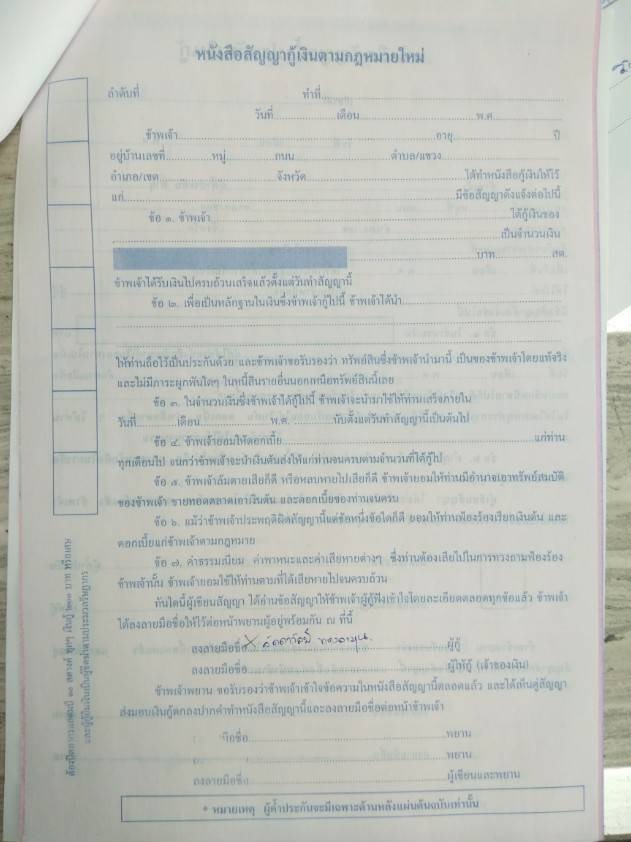 หนังสือสัญญากู้เงินตามกฎหมายใหม่
ลำดับที่ ทำที่
วันที่ เดือน พ.ศ
ข้าพเจ้า อายุ ปี
อยู่บ้านเลขที่ หมู่ ถนน ตำบล/แขวง
อำเภอ/เขต จังหวัด ได้ทำหนังสือกู้เงินให้ไว้
แก่ มีข้อสัญญาดังแจ้งต่อไปนี้
ข้อ ๑. ข้าพเจ้า ได้กู้เงินของ
เป็นจำนวนเงิน
บาท สต.
ข้าพเจ้าได้รับเงินไปครบถ้วนเสร็จแล้วตั้งแต่วันทำสัญญานี้
ข้อ ๒. เพื่อเป็นหลักฐานในเงินซึ่งข้าพเจ้ากู้ไปนี้ ข้าพเจ้าได้นำ
ให้ท่านถือไว้เป็นประกันด้วย และข้าพเจ้าขอรับรองว่า ทรัพย์สินซึ่งข้าพเจ้านำมานี้ เป็นของข้าพเจ้าโดยแท้จริง
และไม่มีภาระผูกพันใดๆ ในหนี้สินรายอื่นนอกเหนือทรัพย์สินนี้เลย
ข้อ ๓. ในจำนวนเงินซึ่งข้าพเจ้าได้กู้ไปนี้ ข้าพเจ้าจะนำมาใช้ให้ท่านเสร็จภายใน
วันที่ เดือน พ.ศ. นับตั้งแต่วันทำสัญญานี้เป็นต้นไป
ข้อ ๔. ข้าพเจ้ายอมให้ดอกเบี้ย แก่ท่าน
ทุกเดือนไป จนกว่าข้าพเจ้าจะนำเงินต้นส่งให้แก่ท่านจนครบตามจำนวนที่ได้กู้ไป
ข้อ ๕. ข้าพเจ้าล้มตายเสียก็ดี หรือหลบหายไปเสียก็ดี ข้าพเจ้ายอมให้ท่านมีอำนาจเอาทรัพย์สมบัติ
ของข้าพเจ้า ขายทอดตลาดเอาเงินต้น และดอกเบี้ยของท่านจนครบ
ข้อ ๖. แม้ว่าข้าพเจ้าประพฤติผิดสัญญานี้แต่ข้อหนึ่งข้อใดก็ดี ยอมให้ท่านฟ้องร้องเรียกเงินต้น และ
ดอกเบี้ยแก่ข้าพเจ้าตามกฎหมาย
ข้อ ๗. ค่าธรรมเนียม ค่าพาหนะและค่าเสียหายต่างๆ ซึ่งท่านต้องเสียไปในการทวงถามฟ้องร้อง
ข้าพเจ้านั้น ข้าพเจ้ายอมใช้ให้ท่านตามที่ได้เสียหายไปจนครบถ้วน
ทันใดนี้ผู้เขียนสัญญา ได้อ่านข้อสัญญาให้ข้าพเจ้าผู้กู้ฟังเข้าใจโดยละเอียดตลอดทุกข้อแล้ว ข้าพเจ้า
ได้ลงลายมือชื่อให้ไว้ต่อหน้าพยานผู้อยู่พร้อมกัน ณ ที่นี้
ลงลายมือชื่อ ผู้กู้
ลงลายมือชื่อ ผู้ให้กู้ (เจ้าของเงิน)
ข้าพเจ้าพยาน ขอรับรองว่าข้าพเจ้าเข้าใจข้อความในหนังสือสัญญานี้ตลอดแล้ว และได้เห็นคู่สัญญา
ส่งมอบเงินกู้ตกลงปากคำทำหนังสือสัญญานี้และลงลายมือชื่อต่อหน้าข้าพเจ้า
มือชื่อ พยาน
พยาน
ลงลายมือชื่อ ผู้เขียนและพยาน
* หมายเหตุ ผู้ค้ำประกันจะมีเฉพาะด้านหลังแผ่นต้นฉบับเท่านั้น